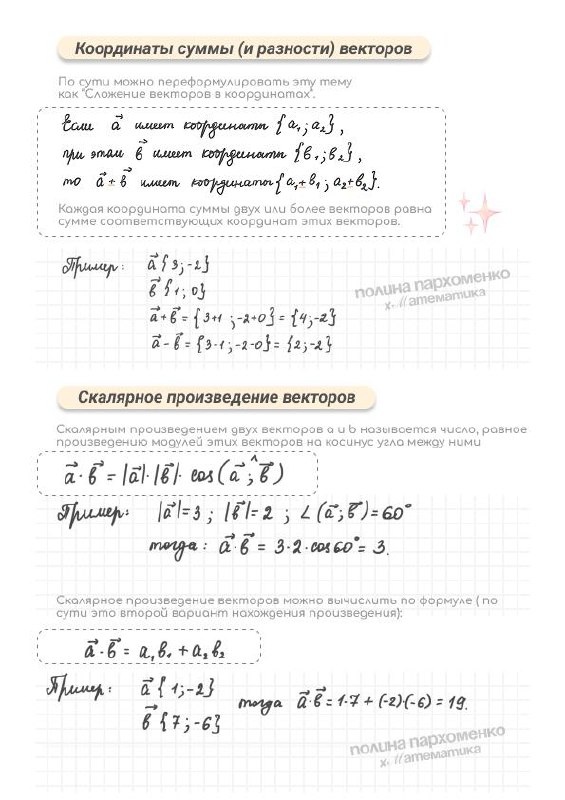 Координаты суммы (и разности) векторов
По сути можно переформулировать эту тему
как "Сложение векторов в координатах".
Если a⃗ имеет координаты {a₁; a₂},
при этом b⃗ имеет координаты {b₁; b₂},
то a⃗ + b⃗ имеет координаты {a₁+b₁; a₂+b₂}.
Каждая координата суммы двух или более векторов равна
сумме соответствующих координат этих векторов.
Пример: a⃗ {3; -2}
b⃗ {1; 0}
a⃗ + b⃗ = {3+1; -2+0} = {4; -2}
a⃗ - b⃗ = {3-1; -2-0} = {2; -2}
полина пархоменко
х. //атематика
Скалярное произведение векторов
Скалярным произведением двух векторов a и b называется число, равное
произведению модулей этих векторов на косинус угла между ними
a⃗ · b⃗ = |a⃗| · |b⃗| · cos(a⃗ ^; b⃗)
Пример: |a⃗| = 3 ; |b⃗| = 2 ; ∠(a⃗; b⃗) = 60°
тогда: a⃗ · b⃗ = 3 · 2 · cos60° = 3.
Скалярное произведение векторов можно вычислить по формуле ( по
сути это второй вариант нахождения произведения):
a⃗ · b⃗ = a₁b₁ + a₂b₂
Пример: a⃗ {1; -2}
b⃗ {7; -6}
тогда a⃗ · b⃗ = 1·7 + (-2)·(-6) = 19.
полина пархоменко
х. //атематика